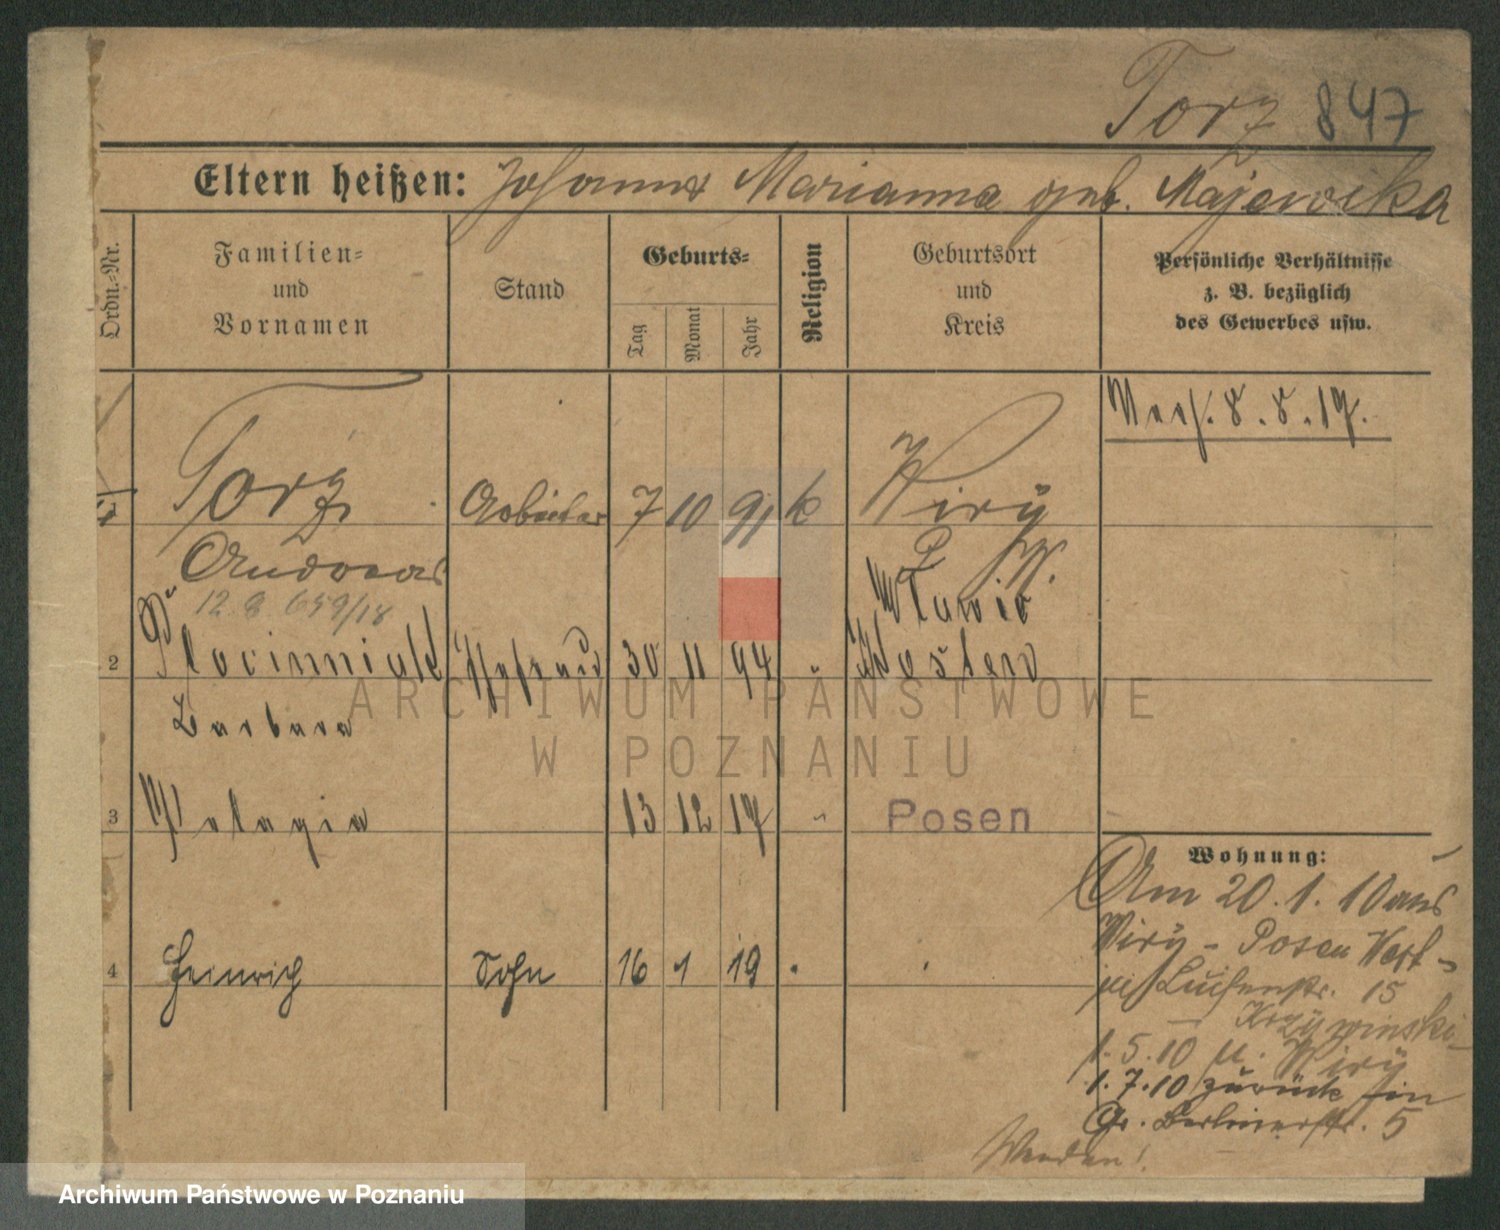 Torz 847
Eltern heißen: Johann Marianna geb. Majewska
Ordn.-Nr.
Familien-
und
Vornamen
Stand
Geburts-
Tag
Monat
Jahr
Religion
Geburtsort
und
Kreis
Persönliche Verhältnisse
z. B. bezüglich
des Gewerbes usw.
8.8.17.
1 Torz Arbeiter 7 10 91 k Wiry
Andreas P. W.
12 8 659/18
2 30 11 94 "
Barbara
3 Pelagia 13 12 17 " Posen
4 Heinrich Sohn 16 1 19
Wohnung:
Am 20.1.10 aus
Wiry - Posen
Luisenstr. 15
1.5.10 n. Wiry
1.7.10 zurück in
Gr. Berlinerstr. 5
Wenden!
ARCHIWUM PAŃSTWOWE
W POZNANIU
Archiwum Państwowe w Poznaniu